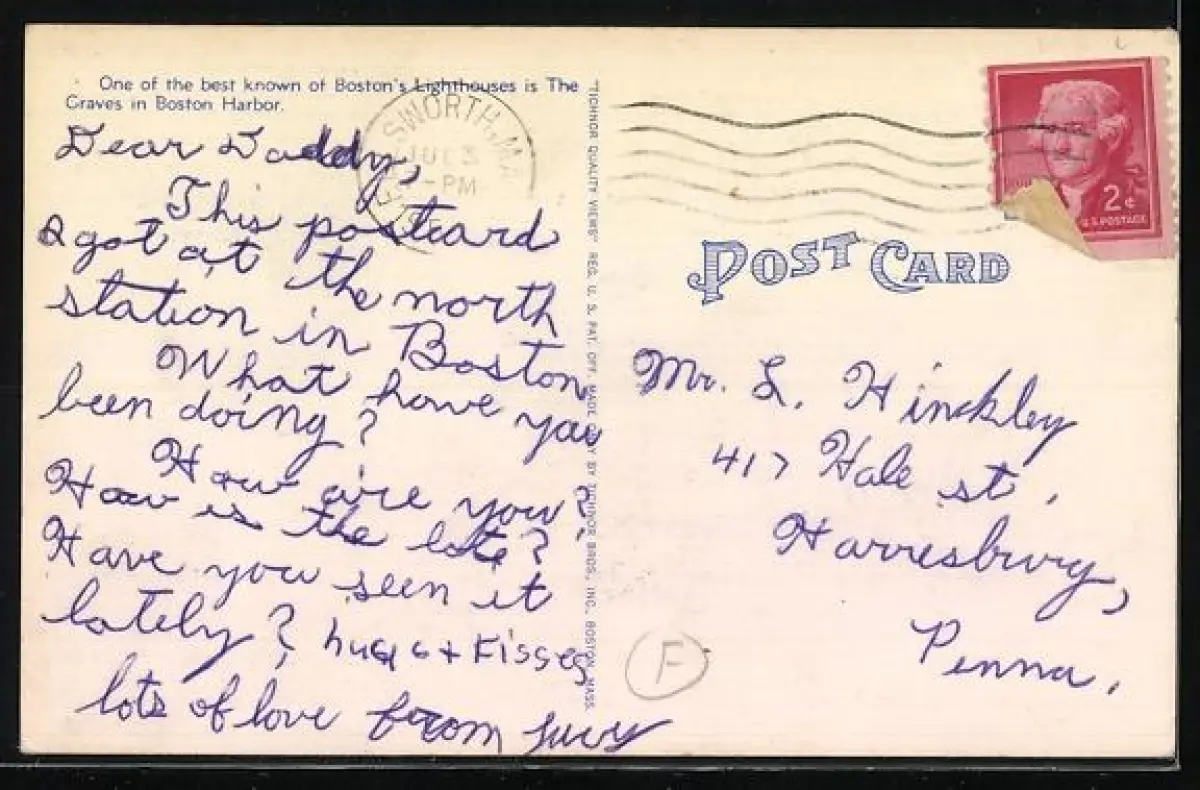 One of the best known of Boston's Lighthouses is The
Graves in Boston Harbor.
Dear Daddy,
This postcard
I got at the north
station in Boston
What have you
been doing?
How are you?
How is the lots?
Have you seen it
lately? hugs + Kisses
lots of love from Lucy
"TICHNOR QUALITY VIEWS" REG. U. S. PAT. OFF. MADE ONLY BY TICHNOR BROS., INC., BOSTON, MASS.
SWORTH, M
JUL 3
PM
2¢
U.S. POSTAGE
POST CARD
Mr. L. Hinckley
417 Hale st,
Harresburg,
Penna.
F